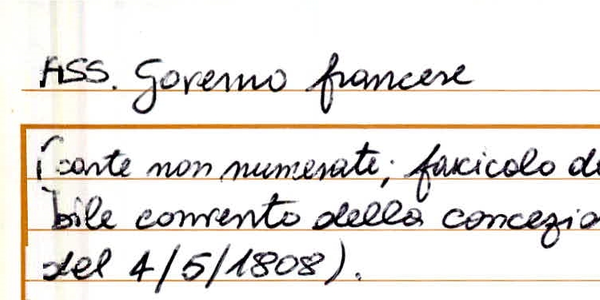 ASS. Governo francese
(carte non numerate; fascicolo de
bile convento della concezio
del 4/5/1808).